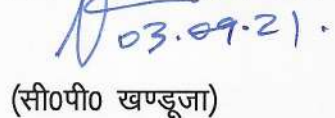 03.09.21.
(सी0पी0 खण्डूजा)